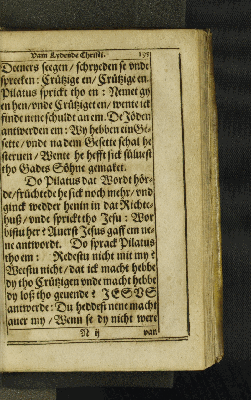 Vam Lydende Christi. 195
Deeners seegen / schryeden se vnde
spreeken: Crützige en / Crützige en.
Pilatus sprickt tho en: Nemet gy
en hen / vnde Crützigt en / wente ick
finde nene schuldt an em. De Jöden
antwerden em: Wy hebben ein Ge-
sette / vnde na dem Gesette schal he
steruen / Wente he hefft sick süluest
tho Gades Söhne gemaket.
Do Pilatus dat Wordt hör-
de / früchtede he sick noch mehr / vnd
ginck wedder henin in dat Richte-
huß / vnde sprickt tho Jesu: Wor
bistu her? Auerst Jesus gaff em ne-
ne antwordt. Do sprack Pilatus
tho em: Redestu nicht mit my?
Weetstu nicht / dat ick macht hebbe
dy tho Crützigen vnde macht hebbe
dy loß tho geuende? JESVS
antwerde: Du heddest nene macht
auer my / Wenn se dy nicht were
N ij van